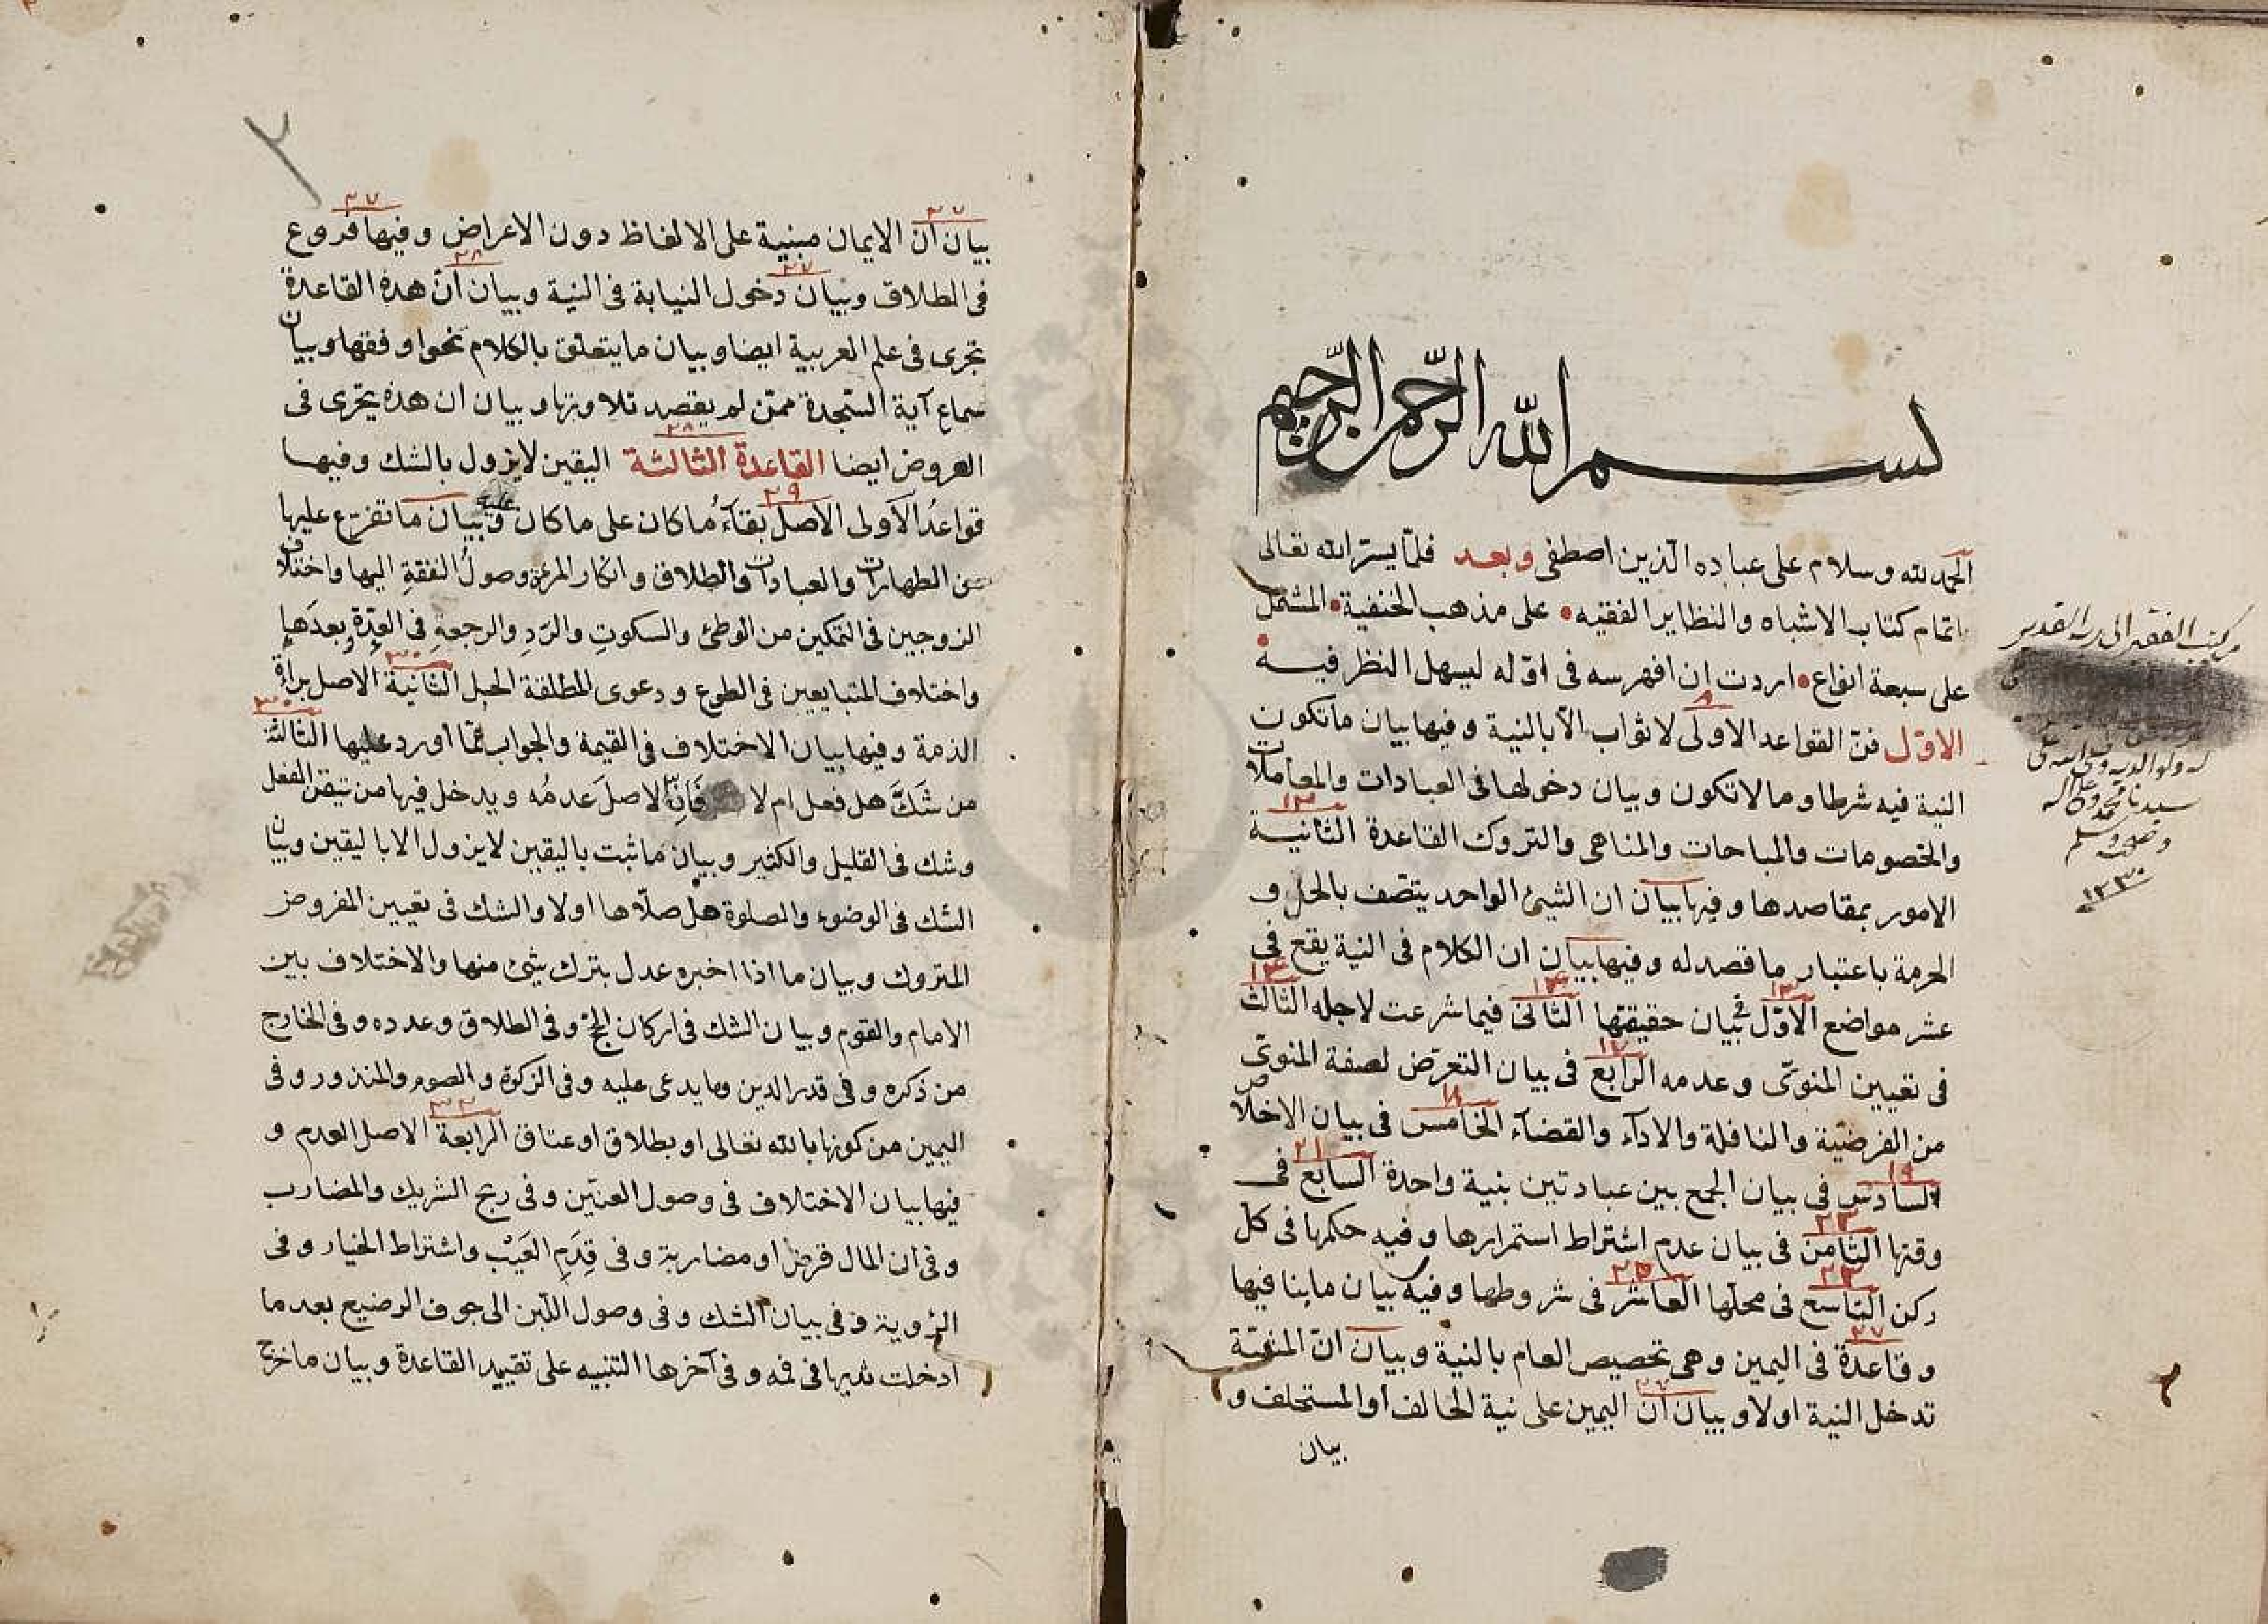 بسم الله الرحمن الرحيم
الحمد لله وسلام على عباده الذين اصطفى وبعد فلما يسر الله تعالى
اتمام كتاب الاشباه والنظاير الفقهيه على مذهب الحنفية المشتمل
على سبعة انواع اردت ان افهرسه فى اوله ليسهل النظر فيه
الاول فن القواعد الاولى لا ثواب الا بالنية وفيها بيان ما تكون
النية فيه شرطا وما لا تكون وبيان دخولها فى العبادات والمعاملات
والخصومات والمباحات والمناهى والتروك القاعدة الثانية
١٣
الامور بمقاصدها وفيها بيان ان الشيئ الواحد يتصف بالحل و
الحرمة باعتبار ما قصد له وفيها بيان ان الكلام فى النية يقع فى
عشر مواضع الاول فى بيان حقيقتها الثانى فيما شرعت لاجله الثالث
فى تعيين المنوى وعدمه الرابع فى بيان التعرض لصفة المنوى
من الفرضية والنافلة والاداء والقضاء الخامس فى بيان الاخلاص
١٨
السادس فى بيان الجمع بين عبادتين بنية واحدة السابع فى
١٩ ٢١
وقتها الثامن فى بيان عدم اشتراط استمرارها وفيه حكمها فى كل
ركن التاسع فى محلها العاشر فى شروطها وفيه بيان ما ينافيها
وقاعدة فى اليمين وهى تخصيص العام بالنية وبيان ان
٢٧
تدخل النية اولا وبيان ان اليمين على نية الحالف او المستحلف و
٢٧
بيان
الفقير الى ربه القدير
له ولوالديه
سيدنا محمد وعلى اله
وصحبه وسلم
١٢٣٠
٢
٢٧ ٢٧
بيان ان الايمان مبنية على الالفاظ دون الاعراض وفيها فروع
فى الطلاق وبيان دخول النيابة فى النية وبيان ان هذه القاعدة
٢٧ ٢٨
تجرى فى علم العربية ايضا وبيان ما يتعلق بالكلام نحوا وفقها وبيان
سماع آية السجدة ممن لم يقصد تلاوتها وبيان ان هذه تجرى فى
العروض ايضا القاعدة الثالثة اليقين لا يزول بالشك وفيها
٢٨
قواعد الاولى الاصل بقاء ما كان على ما كان عليه وبيان ما تفرع عليها
٢٩
من الطهارات والعبادات والطلاق وانكار المرءة وصول النفقة اليها واختلاف
الزوجين فى التمكين من الوطئ والسكوت والرد والرجعة فى العدة بعدها
واختلاف المتبايعين فى الطوع ودعوى المطلقة الحبل الثانية الاصل براءة
٣٠
الذمة وفيها بيان الاختلاف فى القيمة والجواب عما اورد عليها الثالثة
٣٠
من شك هل فعل ام لا فان الاصل عدمه ويدخل فيها من تيقن الفعل
وشك فى القليل والكثير وبيان ما ثبت باليقين لا يزول الا باليقين وبيان
الشك فى الوضوء والصلوة هل صلاها اولا والشك فى تعيين المفروض
المتروك وبيان ما اذا اخبره عدل بترك شئ منها والاختلاف بين
الامام والقوم وبيان الشك فى اركان الحج وفى الطلاق وعدده وفى الخارج
من ذكره وفى قدر الدين وما يدعى عليه وفى الزكوة والصوم والمنذور وفى
اليمين من كونها بالله تعالى او بطلاق او عتاق الرابعة الاصل العدم و
٣٢
فيها بيان الاختلاف فى وصول العنين وفى ربح الشريك والمضارب
وفى ان المال قرض او مضاربة وفى قدم العيب واشتراط الخيار وفى
الرؤية وفى بيان الشك وفى وصول اللبن الى جوف الرضيع بعد ما
ادخلت ثديها فى فمه وفى آخرها التنبيه على تقييد القاعدة وبيان ما خرج